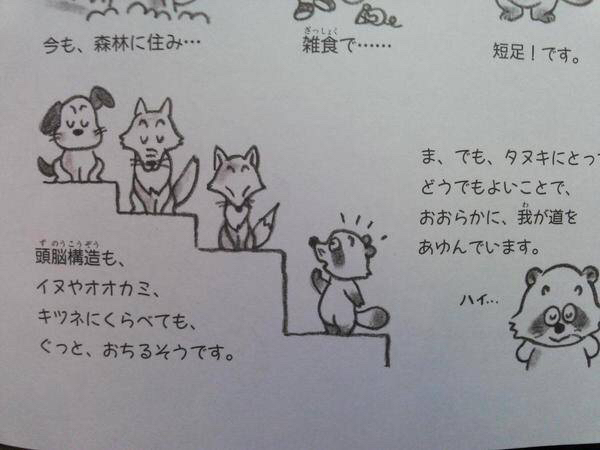 今も、森林に住み…
雑食で……
短足！です。
頭脳構造も、
イヌやオオカミ、
キツネにくらべても、
ぐっと、おちるそうです。
ま、でも、タヌキにとっ
どうでもよいことで、
おおらかに、我が道を
あゆんでいます。
ハイ…